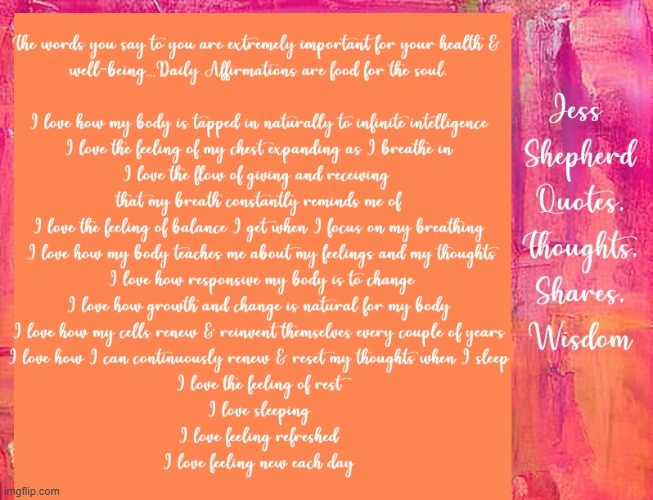 The words you say to you are extremely important for your health &
well-being...Daily Affirmations are food for the soul.
I love how my body is tapped in naturally to infinite intelligence
I love the feeling of my chest expanding as I breathe in
I love the flow of giving and receiving
that my breath constantly reminds me of
I love the feeling of balance I get when I focus on my breathing
I love how my body teaches me about my feelings and my thoughts
I love how responsive my body is to change
I love how growth and change is natural for my body
I love how my cells renew & reinvent themselves every couple of years
I love how I can continuously renew & reset my thoughts when I sleep
I love the feeling of rest
I love sleeping
I love feeling refreshed
I love feeling new each day
Jess
Shepherd
Quotes.
Thoughts.
Shares.
Wisdom
imgflip.com